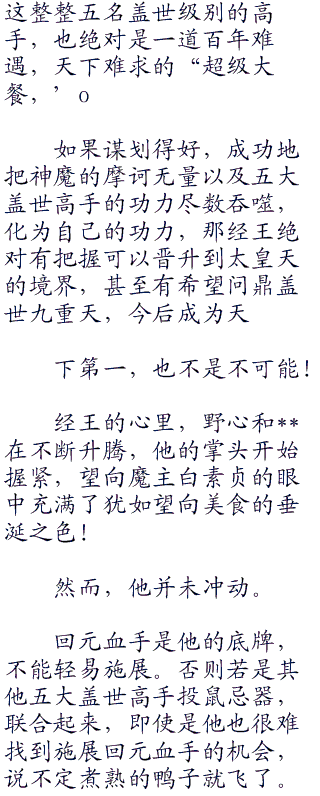 这整整五名盖世级别的高
手，也绝对是一道百年难
遇，天下难求的“超级大
餐，’o
如果谋划得好，成功地
把神魔的摩诃无量以及五大
盖世高手的功力尽数吞噬，
化为自己的功力，那经王绝
对有把握可以晋升到太皇天
的境界，甚至有希望问鼎盖
世九重天，今后成为天
下第一，也不是不可能！
经王的心里，野心和**
在不断升腾，他的掌头开始
握紧，望向魔主白素贞的眼
中充满了犹如望向美食的垂
涎之色！
然而，他并未冲动。
回元血手是他的底牌，
不能轻易施展。否则若是其
他五大盖世高手投鼠忌器，
联合起来，即使是他也很难
找到施展回元血手的机会，
说不定煮熟的鸭子就飞了。